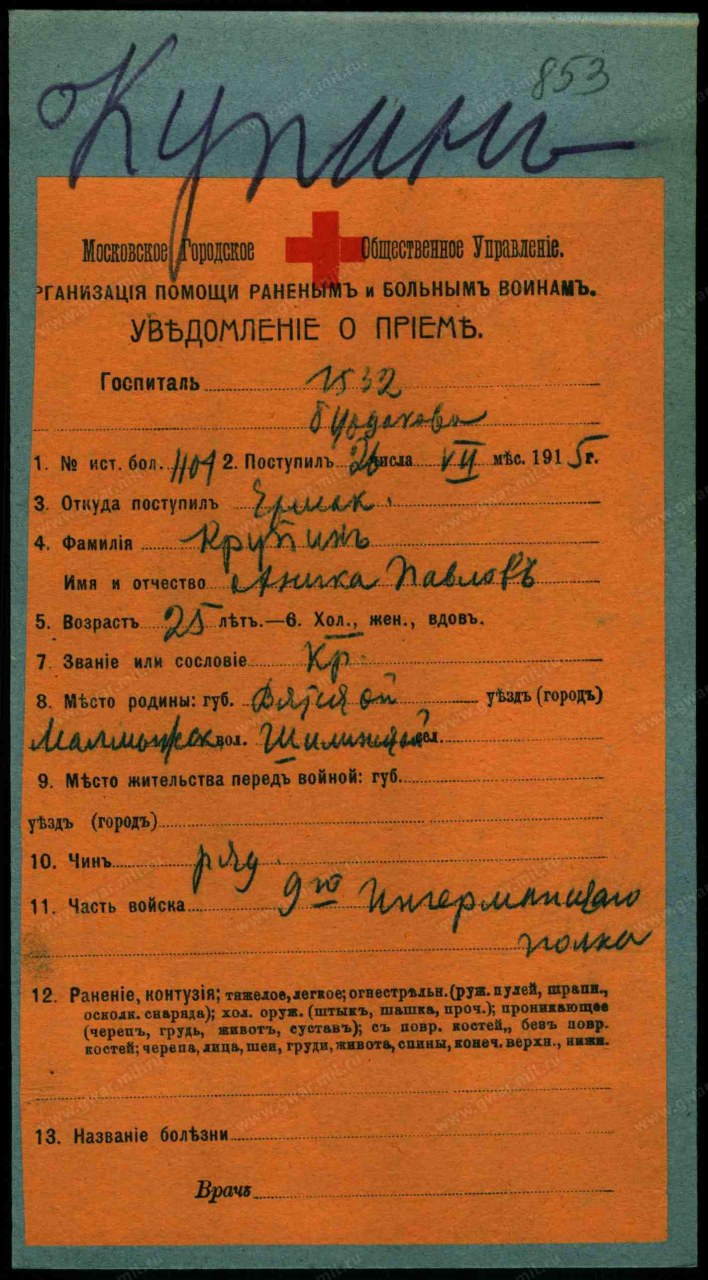 853
Московское Городское Общественное Управленіе.
РГАНИЗАЦІЯ ПОМОЩИ РАНЕНЫМЪ и БОЛЬНЫМЪ ВОИНАМЪ.
УВѢДОМЛЕНІЕ О ПРІЕМѢ.
Госпиталь 1532
1. № ист. бол. 1104 2. Поступилъ 26 числа VII мѣс. 1915 г.
3. Откуда поступилъ Ермак.
4. Фамилія Крупинъ
Имя и отчество Аника Павловъ
5. Возрастъ 25 лѣтъ.—6. Хол., жен., вдов.
7. Званіе или сословіе Кр.
8. Мѣсто родины: губ. Вятской уѣздъ (городъ)
Малмыжск вол. сел.
9. Мѣсто жительства передъ войной: губ.
уѣздъ (городъ)
10. Чинъ ряд.
11. Часть войска 9го Ингерманланскаго
полка
12. Раненіе, контузія; тяжелое, легкое; огнестрѣльн. (руж. пулей, шрапн.,
осколк. снаряда); хол. оруж. (штыкъ, шашка, проч.); проникающее
(черепъ, грудь, животъ, суставъ); съ повр. костей, безъ повр.
костей; черепа, лица, шеи, груди, живота, спины, конеч. верхн., нижн.
13. Названіе болѣзни
Врачъ